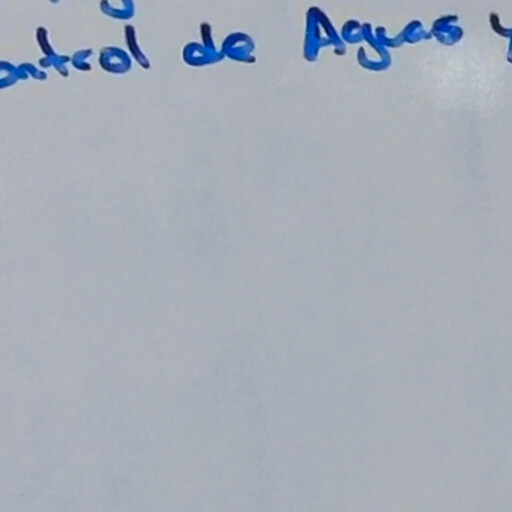 ontrol de Aguas y